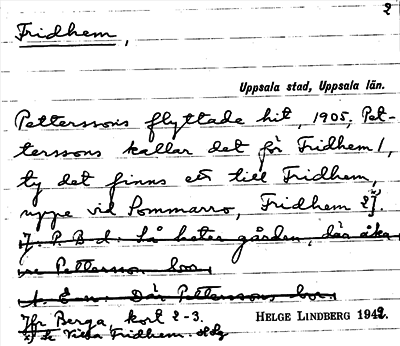 2
Fridhem,
Uppsala stad, Uppsala län.
Petterssons flyttade hit, 1905; Pet-
terssons kallar det för Fridhem 1,
ty det finns ett till Fridhem,
uppe vid Sommarro, Fridhem 2
J. P. B-d. Så heter gården, där åka-
re Pettersson bor.
A. E-n. Där Petterssons bor.
Jfr Berga, kort 2-3.
HELGE LINDBERG 1942.
Villa Fridhem.